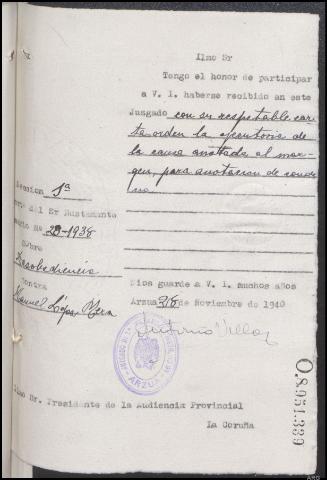 Ilmo Sr
Tengo el honor de participar
a V. I. haberse recibido en este
Juzgado con su respetable car
ta orden la ejecutoria de
la causa anotada al mar-
gen, para anotación de conde
na
Sección 1ª
del Sr Bustamante
Nº 29-1938
Sobre
Desobediencia
Contra
Manuel López Mera
Dios guarde a V. I. muchos años
Arzua 28 de Noviembre de 1940
Antonio
ARZUA
Ilmo Sr. Presidente de la Audiencia Provincial
La Coruña
O.8951.339
ARG